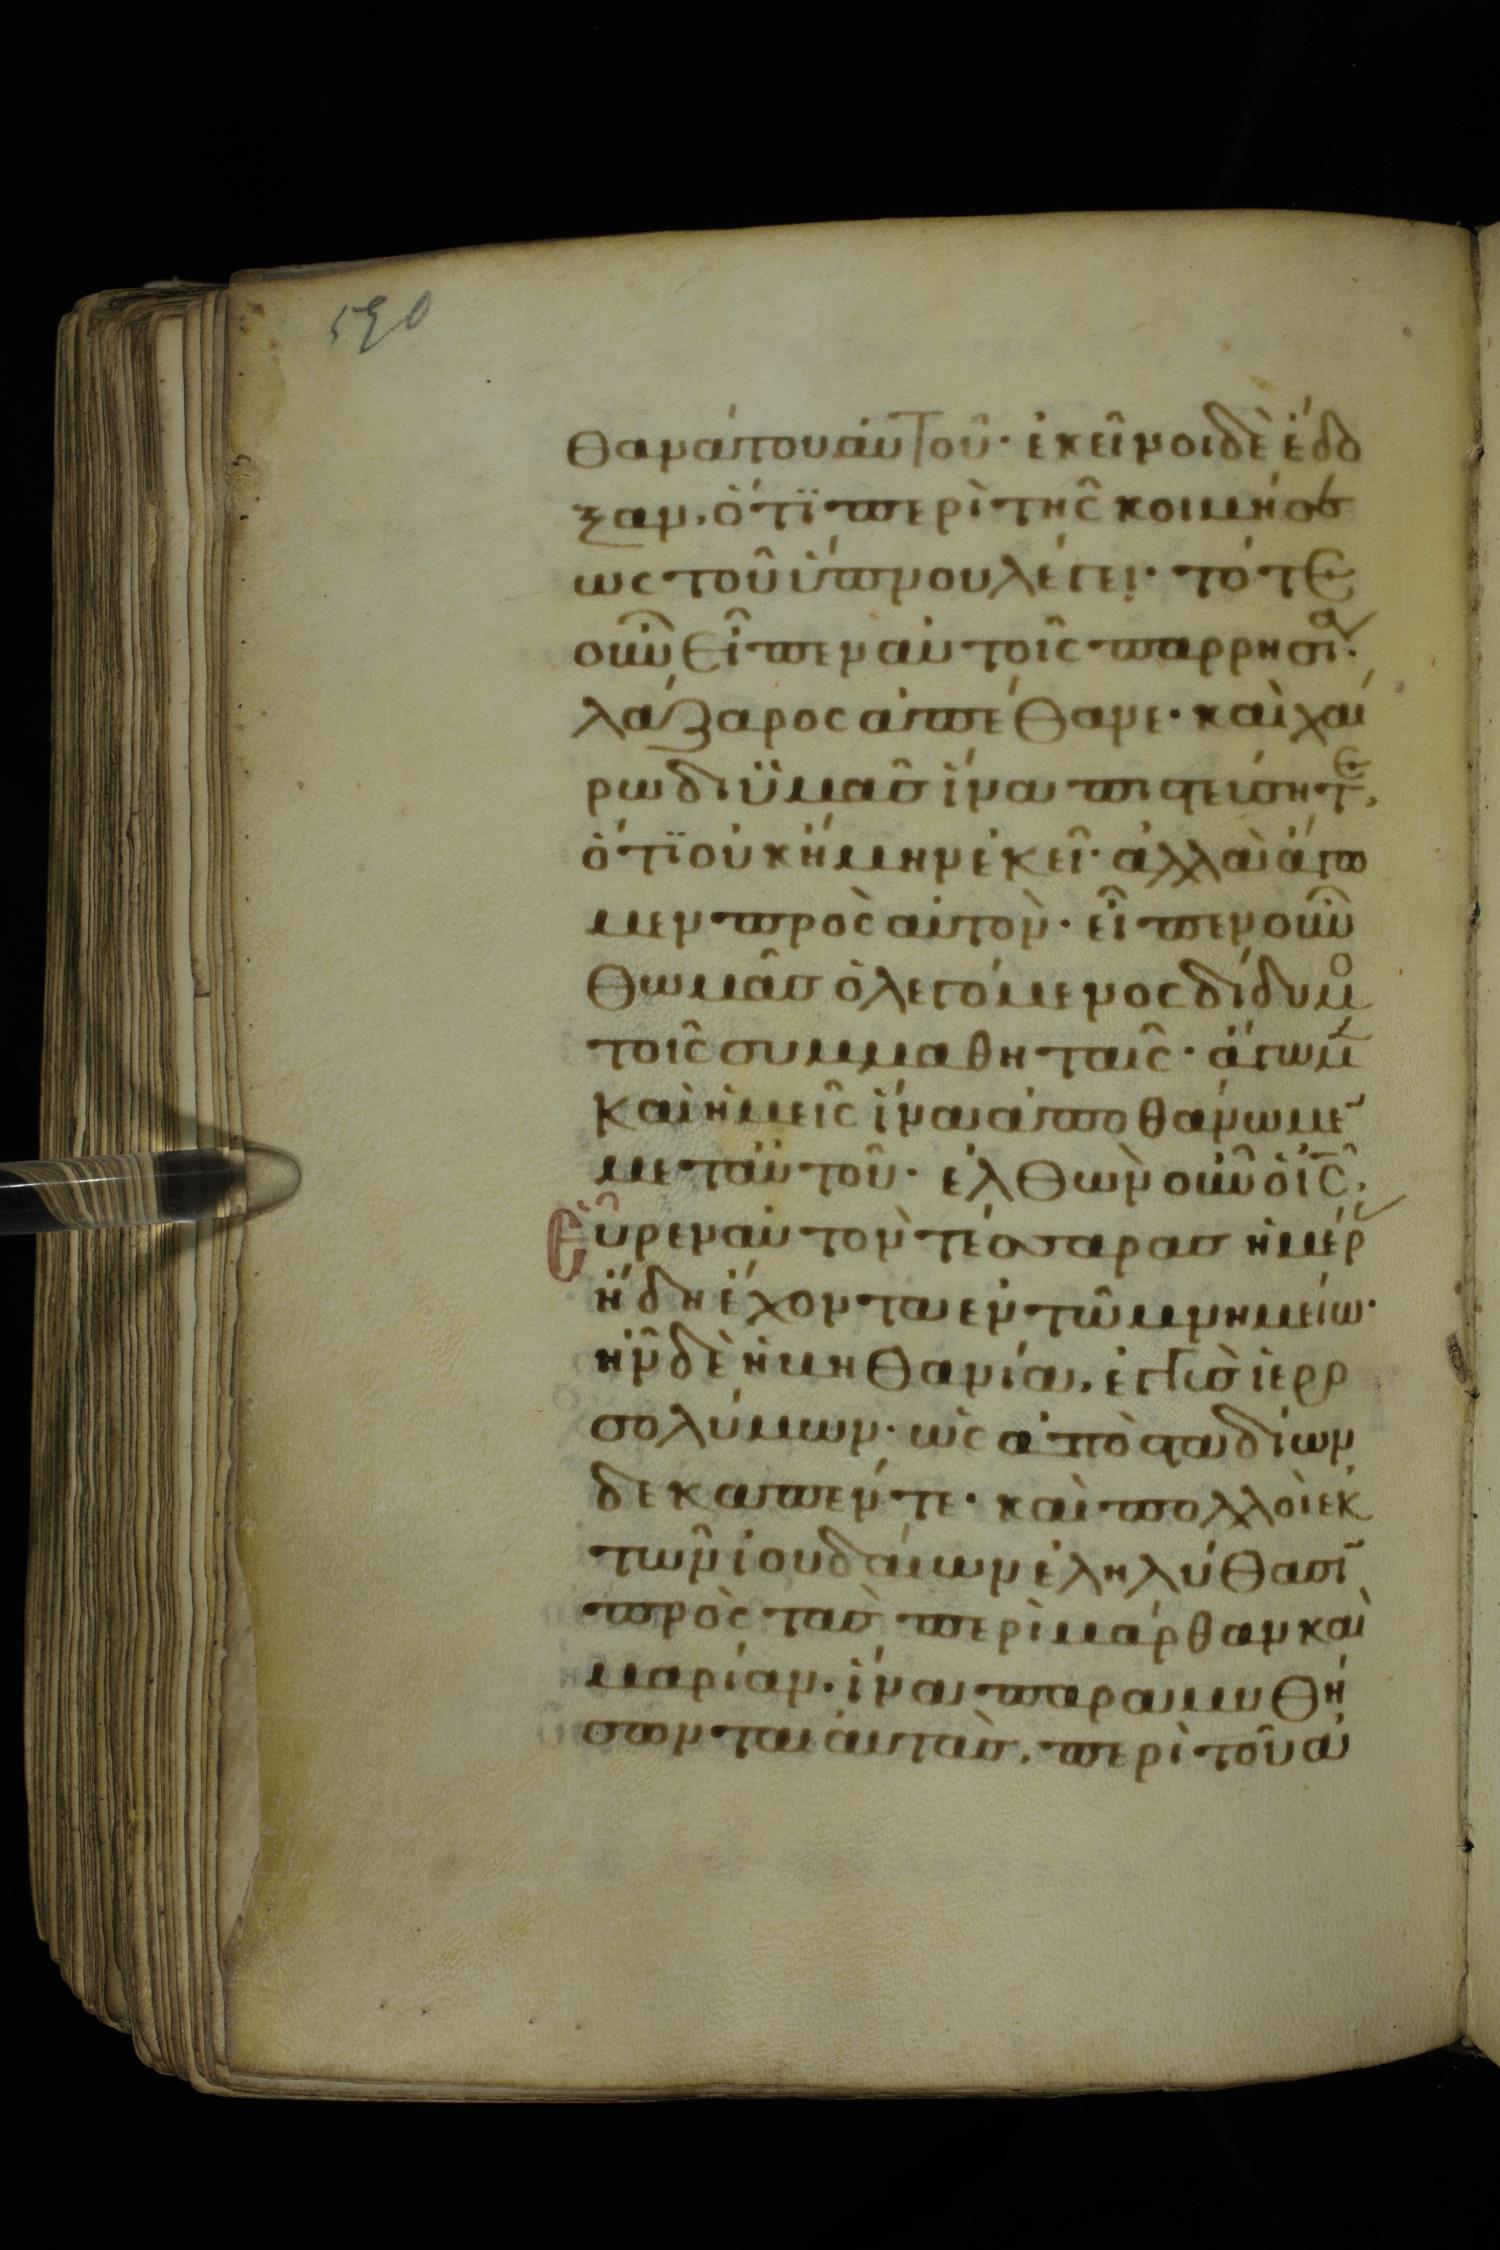 590
θανάτου αὐτοῦ· ἐκεῖνοι δὲ ἔδο
ξαν, ὅτϊ περὶ τῆς κοιμήσε
ως τοῦ ὕπνου λέγει· τότε
οὖν εἶπεν αὐτοῖς παρρησίᾳ·
λάζαρος ἀπέθανε· καὶ χαί
ρω δι ϋμᾶς ἵνα πιστεύσητε,
ὅτϊ οὐκ ἤμην ἐκεῖ· ἀλλὰ ἄγω
μεν πρὸς αὐτὸν· εἶπεν οὖν
θωμᾶς ὁ λεγόμενος δίδυμο
τοῖς συμμαθηταῖς· ἄγωμ
καὶ ἡμεῖς ἵνα ἀποθάνωμε̄
μετ αὐτοῦ· ἐλθὼν οὖν ὁ ἰ̅ς̅,
εὗρεν αὐτὸν τέσσαρας ἡμέρ
ἤδη ἔχοντα ἐν τῶ μνημείω·
ἦν δὲ ἡ βηθανία, ἐγγὺς ἱερο
σολύμων· ὡς ἀπὸ σταδίων
δεκαπέντε· καὶ πολλοὶ ἐκ
τῶν ἰουδαίων ἐληλύθασῑ
πρὸς τὰς περὶ μάρθαν καὶ
μαρίαν· ἵνα παραμυθή
σωνται αὐτὰς, περὶ τοῦ ἀ